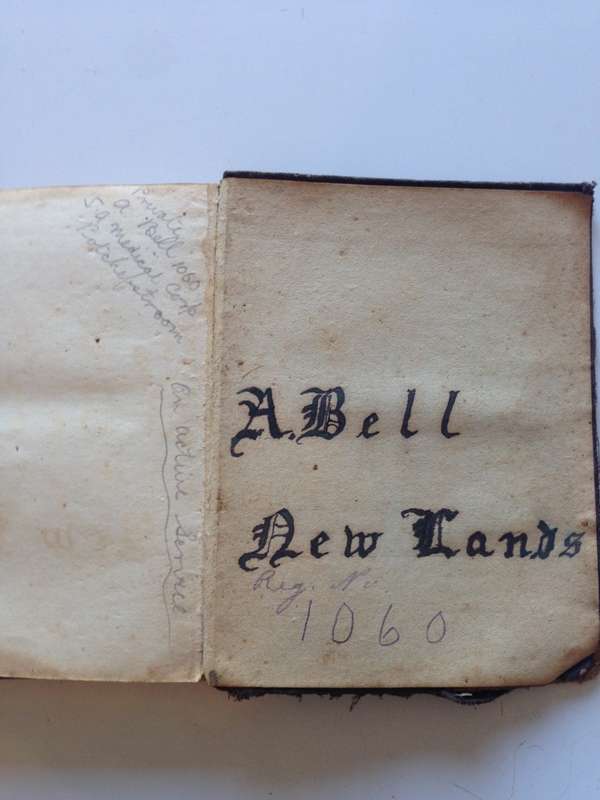 Private
A. Bell 1060
S A medical Corp
Potchefstroom
On active Service
A. Bell
New Lands
Reg. No.
1060